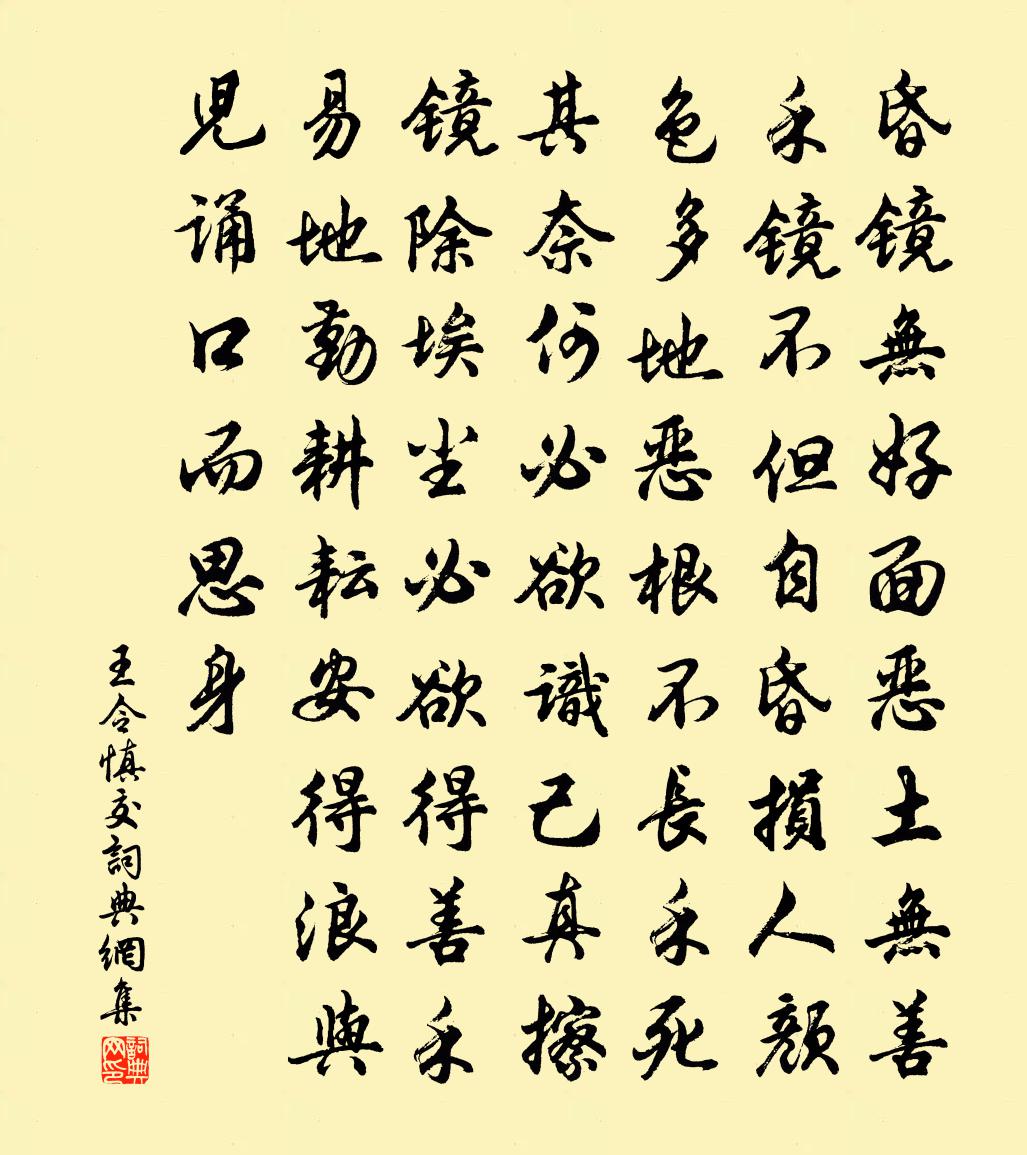 昏镜無好面恶土無善
禾镜不但自昏損人颜
色多地恶根不長禾死
其奈何必欲識己真擦
镜除埃尘必欲得善禾
易地勤耕耘安得浪與
児诵口而思身
王令慎交詞典網集
詞典网印